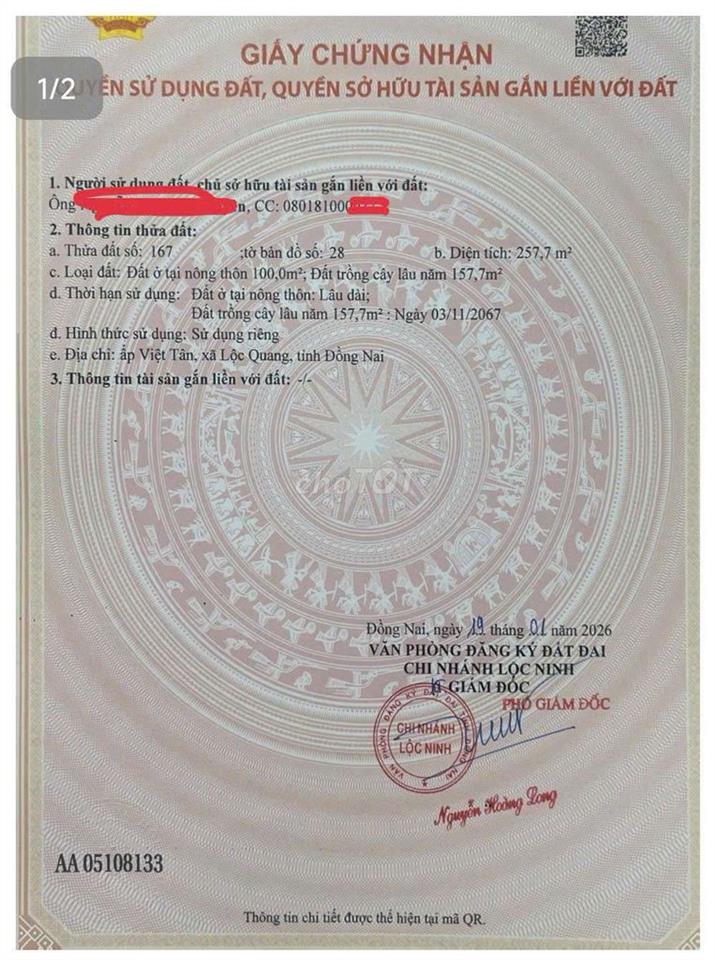 GIẤY CHỨNG NHẬN
1/2
YỀN SỬ DỤNG ĐẤT, QUYỀN SỞ HỮU TÀI SẢN GẮN LIỀN VỚI ĐẤT
1. Người sử dụng đất, chủ sở hữu tài sản gắn liền với đất:
Ông n, CC: 080181000
2. Thông tin thửa đất:
a. Thửa đất số: 167 ;tờ bản đồ số: 28 b. Diện tích: 257,7 m²
c. Loại đất: Đất ở tại nông thôn 100,0m²; Đất trồng cây lâu năm 157,7m²
d. Thời hạn sử dụng: Đất ở tại nông thôn: Lâu dài;
Đất trồng cây lâu năm 157,7m² : Ngày 03/11/2067
đ. Hình thức sử dụng: Sử dụng riêng
e. Địa chỉ: ấp Việt Tân, xã Lộc Quang, tỉnh Đồng Nai
3. Thông tin tài sản gắn liền với đất: -/-
choTỐT
Đồng Nai, ngày 19 tháng 01 năm 2026
VĂN PHÒNG ĐĂNG KÝ ĐẤT ĐAI
CHI NHÁNH LỘC NINH
GIÁM ĐỐC
PHÓ GIÁM ĐỐC
VĂN PHÒNG ĐĂNG KÝ ĐẤT ĐAI TỈNH ĐỒNG NAI
CHI NHÁNH
LỘC NINH
Nguyễn Hoàng Long
AA 05108133
Thông tin chi tiết được thể hiện tại mã QR.